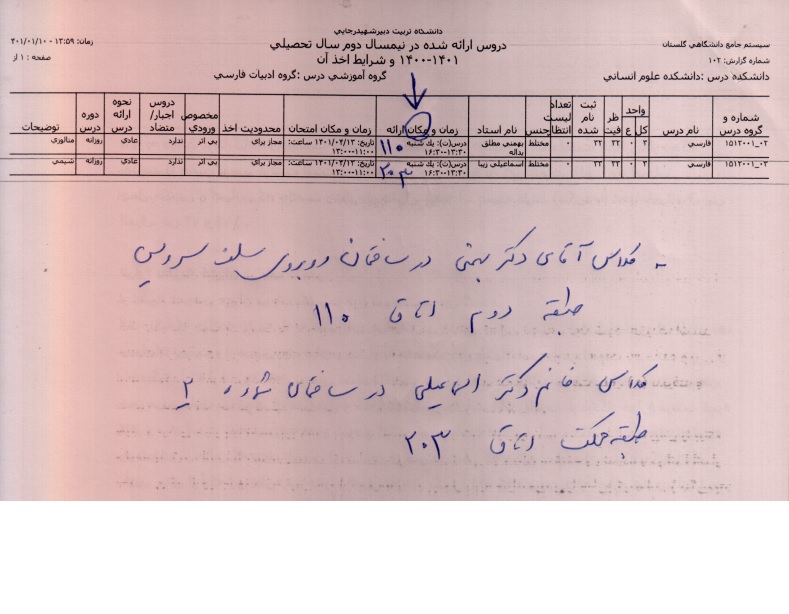 دانشگاه تربیت دبیر شهید رجایی
سیستم جامع دانشگاهي گلستان
دروس ارائه شده در نیمسال دوم سال تحصیلي
زمان: ۱۳:۵۹ - ۴۰۱/۰۱/۱۰
شماره گزارش: ۱۰۲
۱۴۰۰-۱۴۰۱ و شرایط اخذ آن
صفحه : ۱ از
دانشکده درس :دانشکده علوم انساني
گروه آموزشي درس :گروه ادبیات فارسي
شماره و گروه درس نام درس واحد کل ع ظر فیت ثبت نام شده تعداد لیست انتظار جنس نام استاد زمان و مکان ارائه زمان و مکان امتحان محدودیت اخذ مخصوص ورودي دروس اجبار/ متضاد نحوه ارائه درس دوره درس توضیحات
۱۵۱۲۰۰۱_۰۲ فارسي ۳ ۰ ۲۲ ۲۲ ۰ مختلط بهمني مطلق یداله درس(ت): یك شنبه ۱۳:۳۰-۱۶:۳۰ ۱۱۰ ساعت: ۱۱:۰۰-۱۳:۰۰ مجاز براي بي اثر ندارد عادي روزانه متالوژي
۱۵۱۲۰۰۱_۰۳ فارسي ۳ ۰ ۲۲ ۲۲ ۰ مختلط اسماعیلي زیبا درس(ت): یك شنبه ۱۳:۳۰-۱۶:۳۰ ۲۰۳ ساعت: ۱۱:۰۰-۱۳:۰۰ مجاز براي بي اثر ندارد عادي روزانه شیمي
- کلاس آقای دکتر بهمنی در ساختمان روبروی سلف سرویس
طبقه دوم اتاق ۱۱۰
کلاس خانم دکتر اسماعیلی در ساختمان شماره ۲
طبقه همکف اتاق ۲۰۳